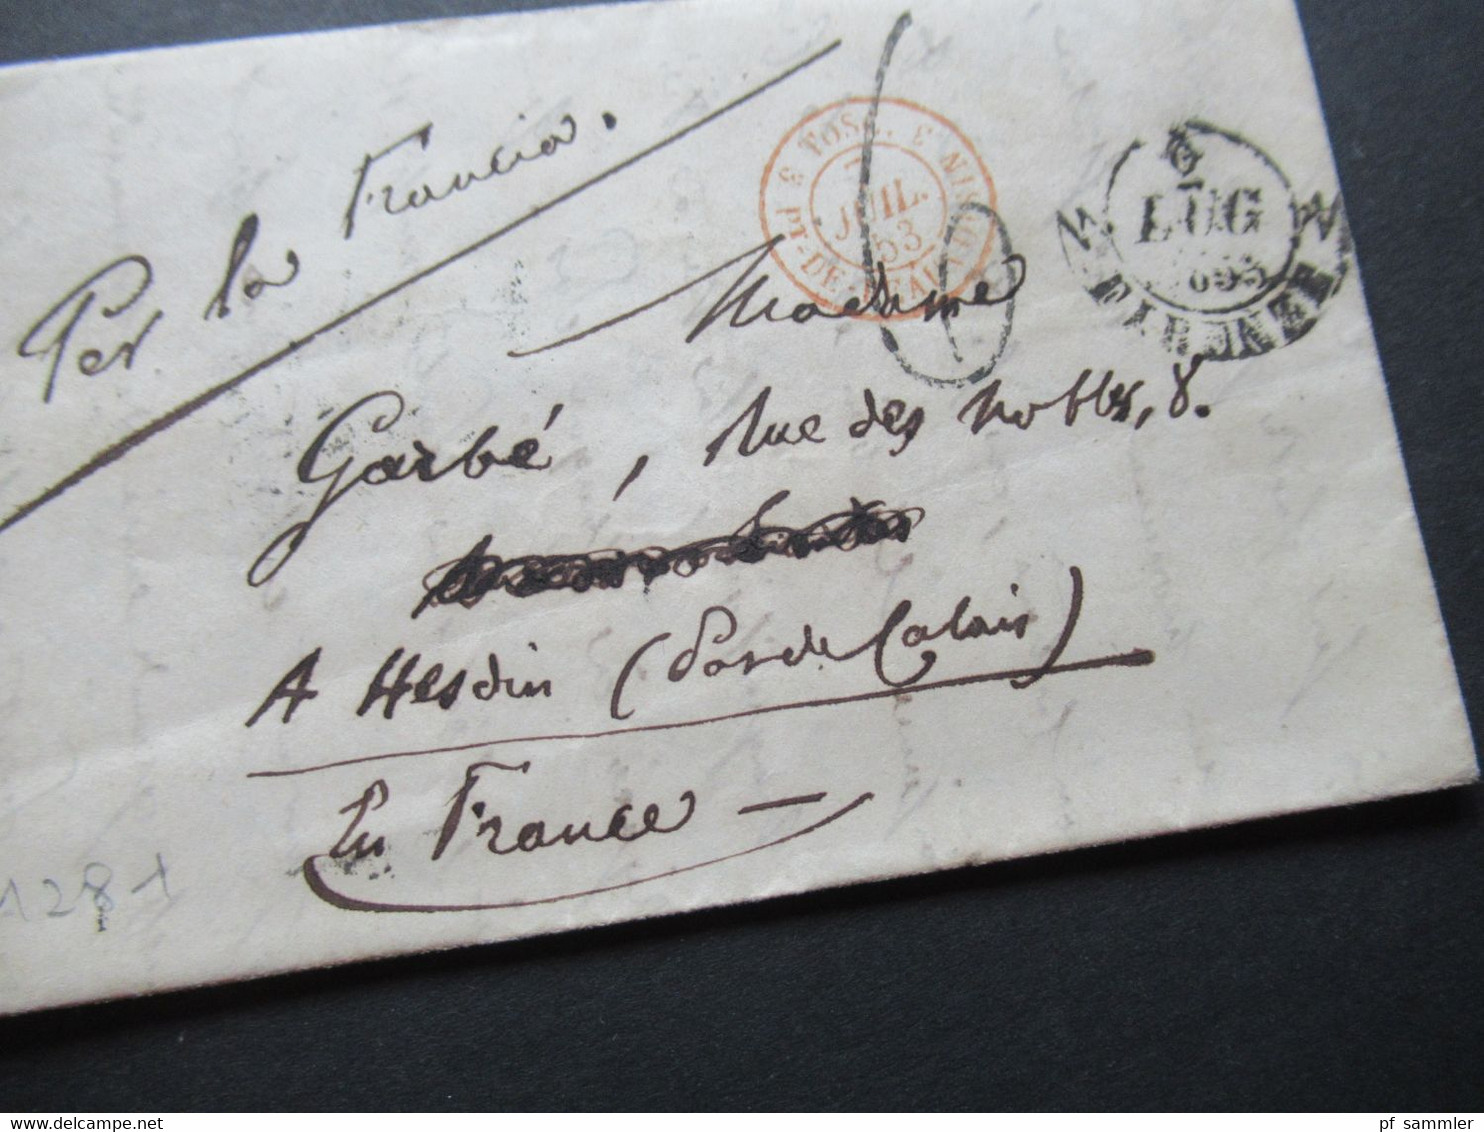 Per la Francia.
TOSC.
3 Pt-DE-BEAUVOISIN 3
JUIL.
53
6
LUG
FIRENZE
Madame
Garbé, Rue des Nobles, 8.
A Hesdin (Pas de Calais)
En France —
128-1
www.delcampe.net
pf_sammler